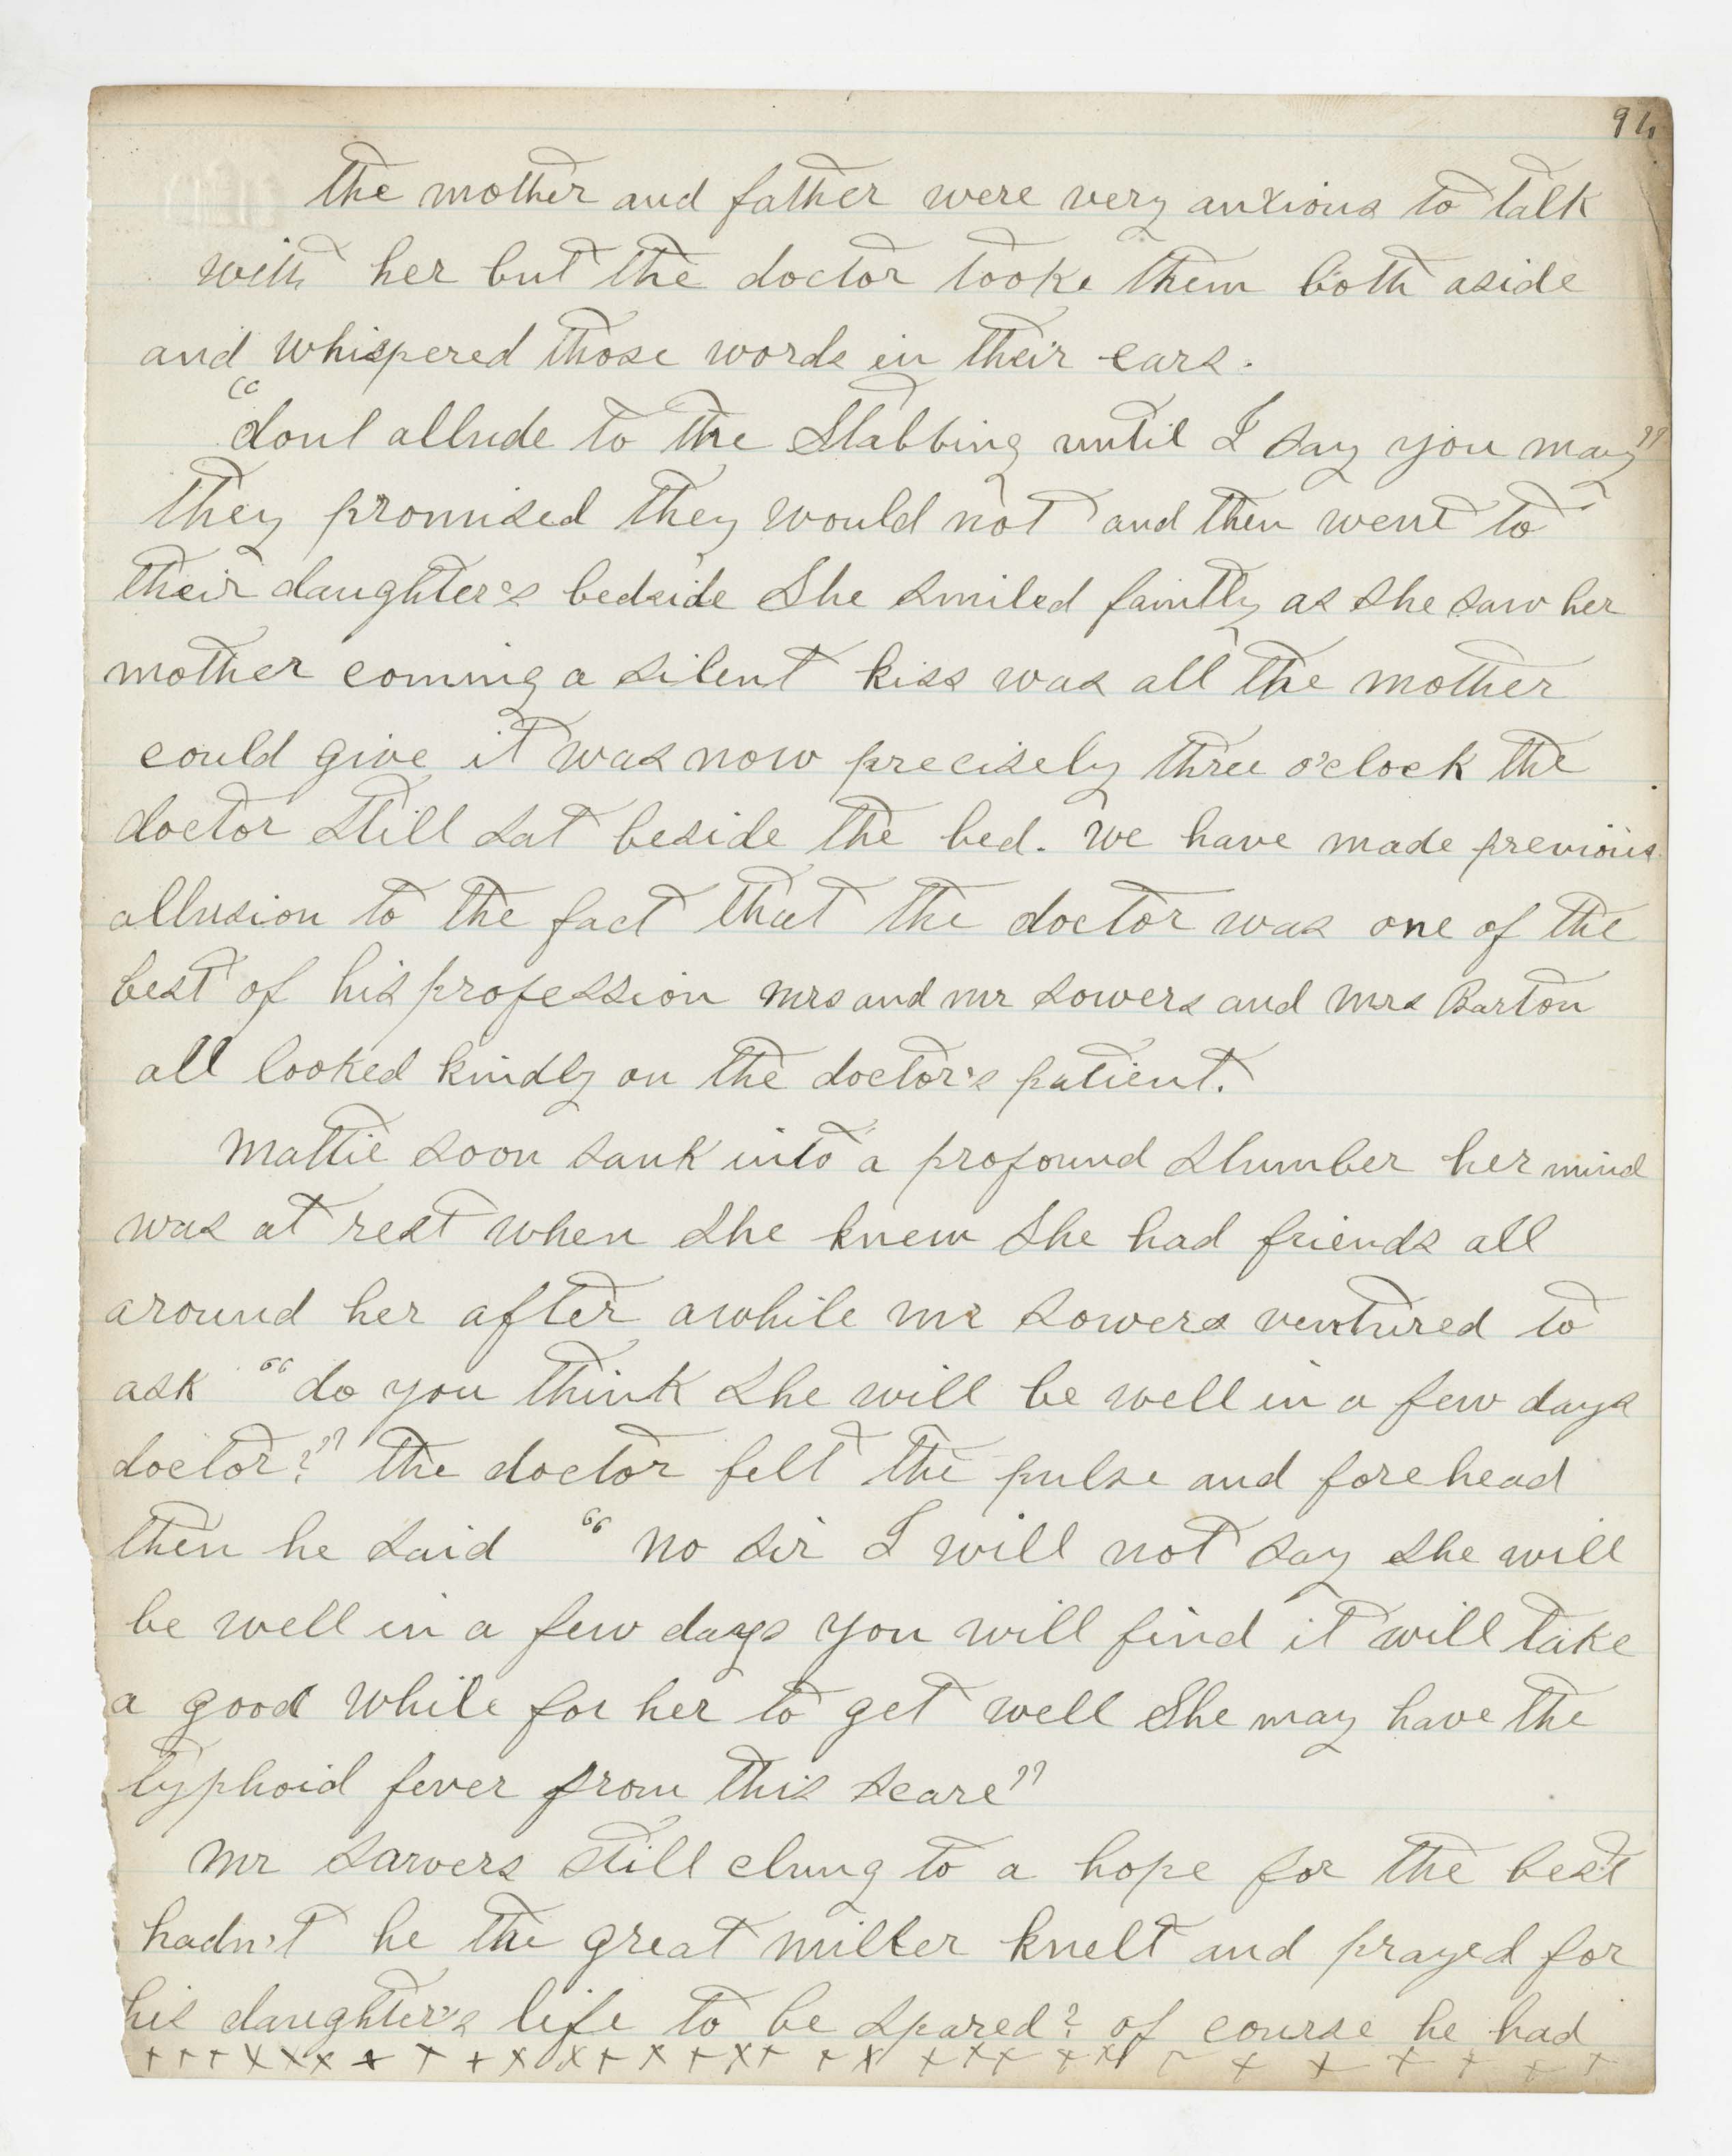 94
the mother and father were very anxious to talk
with her but the doctor tooke them both aside
and whispered those words in their ears.
"dont allude to the Stabbing until I say you may"
they promised they would not and then went to
their daughter's bedside She smiled faintly as she saw her
mother coming a silent kiss was all the mother
could give it was now precisely three o'clock the
doctor still sat beside the bed. we have made previous
allusion to the fact that the doctor was one of the
best of his profession mrs and mr Sowers and mrs Barton
all looked kindly on the doctor's patient.
Mattie soon sank into a profound slumber her mind
was at rest when she knew she had friends all
around her after awhile mr Sowers ventured to
ask "do you think she will be well in a few days
doctor?" the doctor felt the pulse and forehead
then he said "no sir I will not say she will
be well in a few days you will find it will take
a good while for her to get well She may have the
typhoid fever from this scare"
Mr Sarvers still clung to a hope for the best
hadn't he the great miller knelt and prayed for
his daughter's life to be spared? of course he had